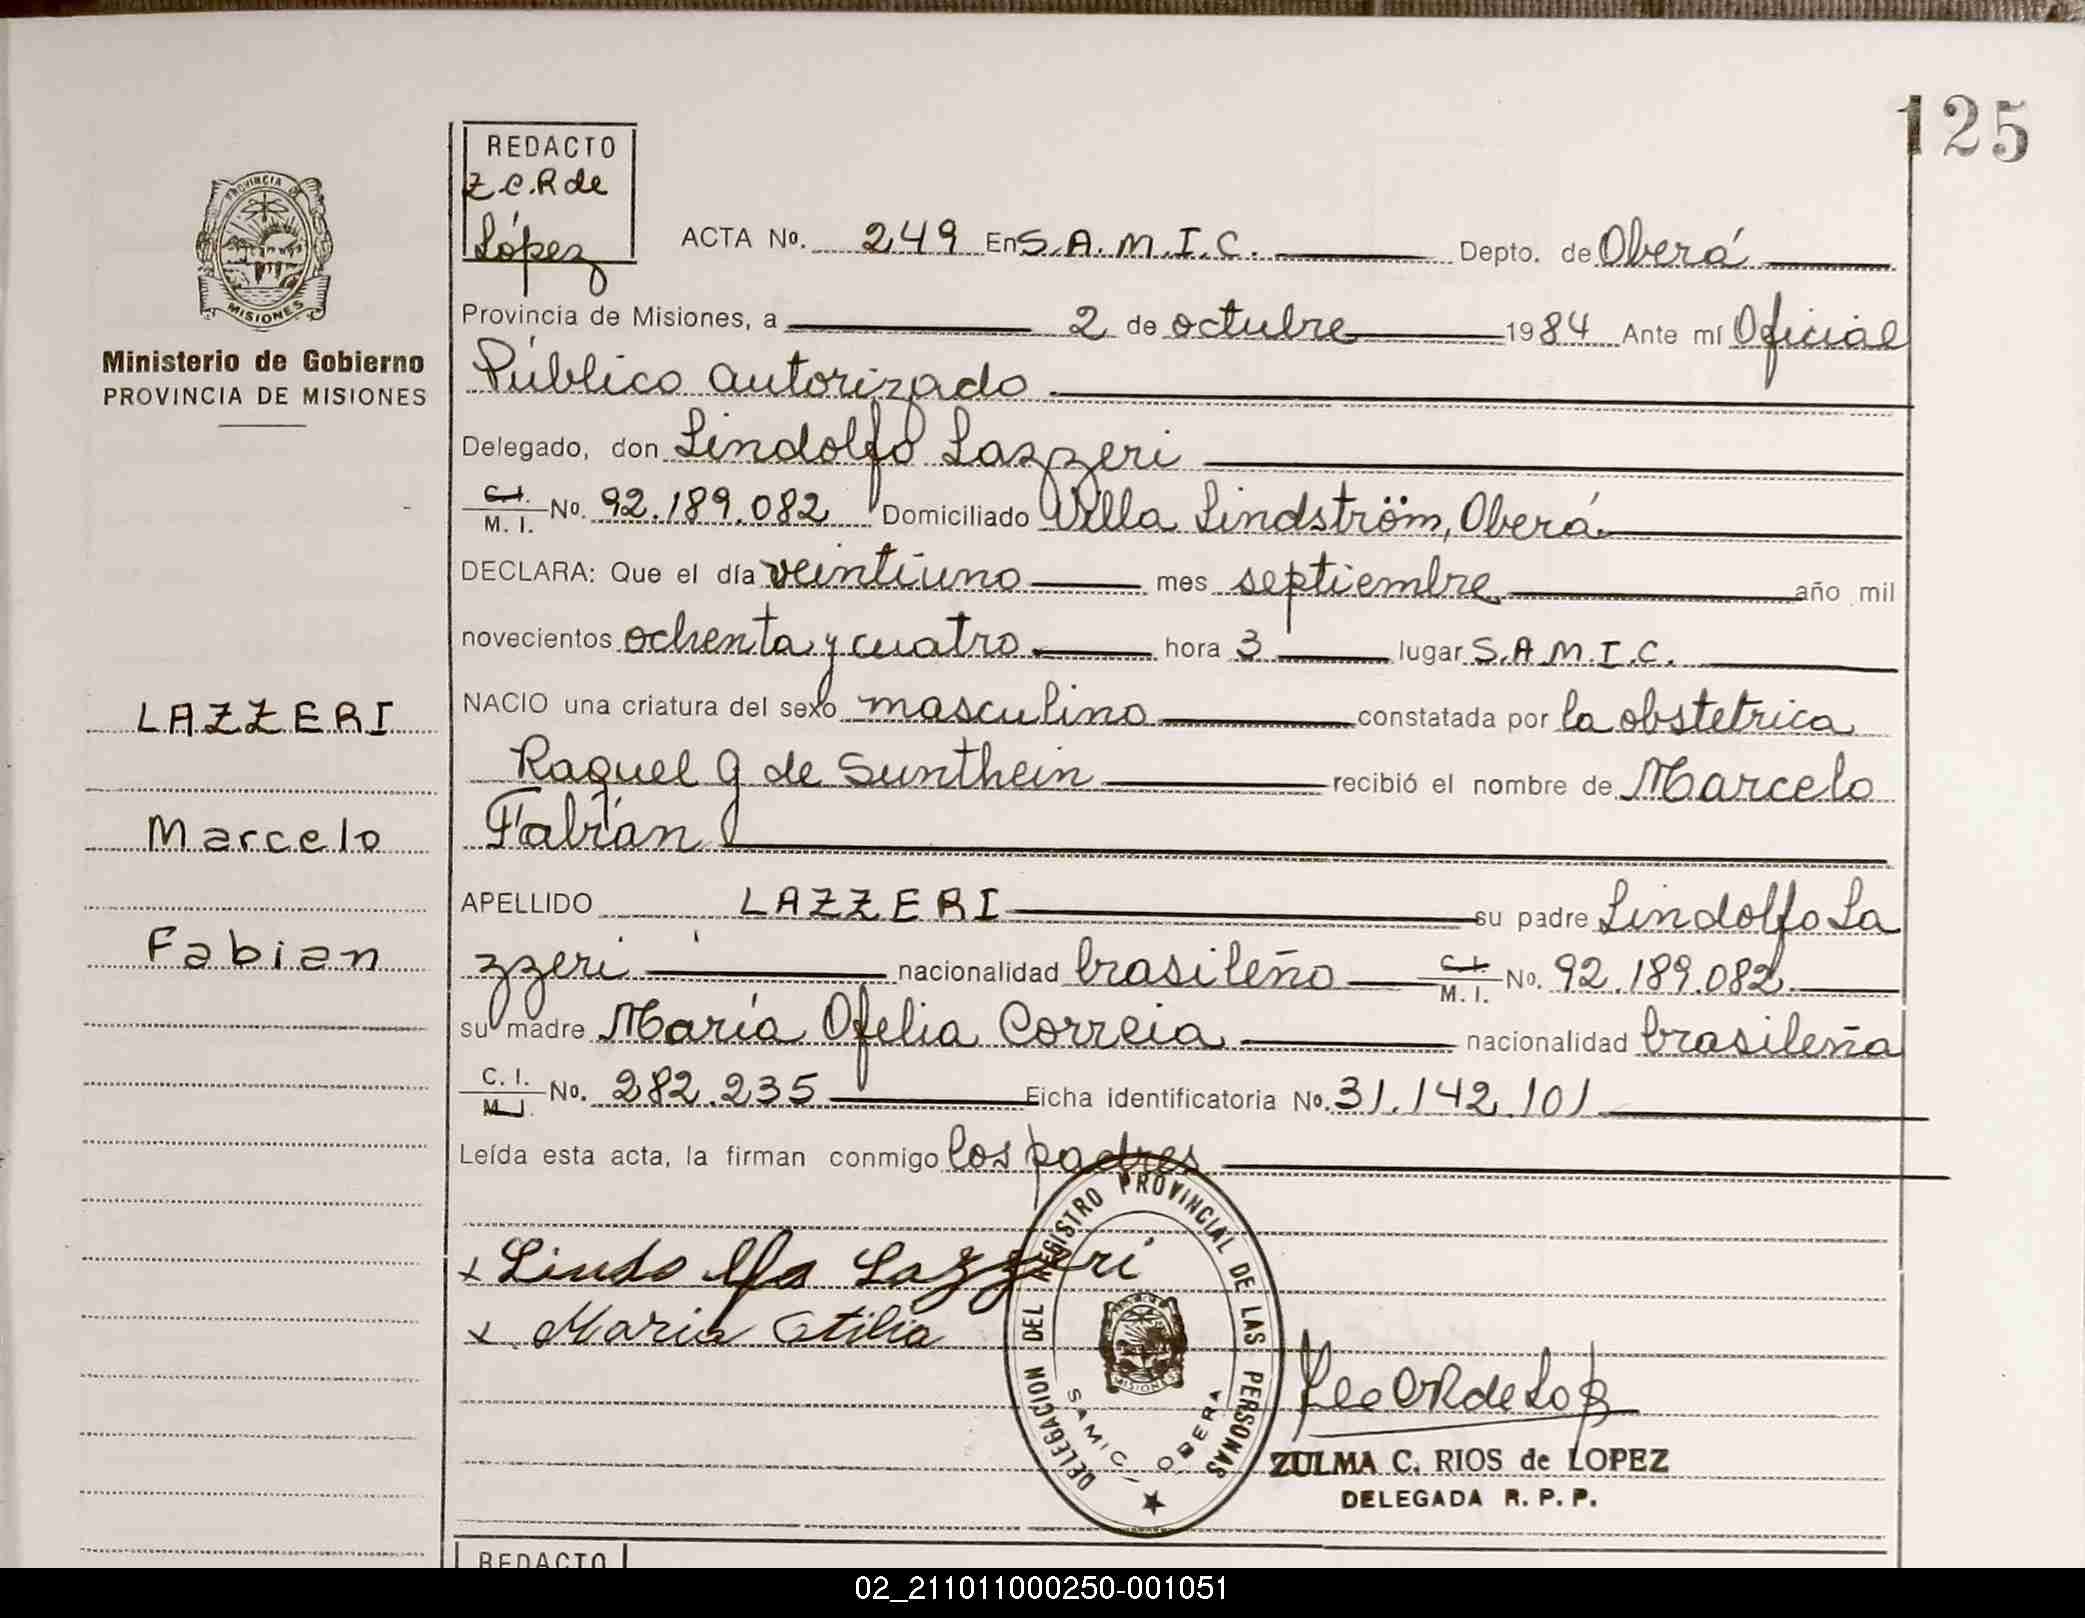 125
REDACTO
Z.C.R de
López
PROVINCIA DE
MISIONES
Ministerio de Gobierno
PROVINCIA DE MISIONES
ACTA No. 249 En S.A.M.I.C. Depto. de Oberá
Provincia de Misiones, a 2 de octubre 1984 Ante mí Oficial
Público autorizado
Delegado, don Lindolfo Lazzeri
C.I. M. I. No. 92.189.082 Domiciliado Villa Lindström, Oberá
DECLARA: Que el día veintiuno mes septiembre año mil
novecientos ochenta y cuatro hora 3 lugar S.A.M.I.C.
LAZZERI
NACIO una criatura del sexo masculino constatada por la obstetrica
Raquel G de Sunthein recibió el nombre de Marcelo
Marcelo
Fabián
APELLIDO LAZZERI su padre Lindolfo La
Fabian
zzeri nacionalidad brasileño C.I. M. I. No. 92.189.082
su madre María Ofelia Correia nacionalidad brasileña
C. I. M.I. No. 282.235 Ficha identificatoria No. 31.142.101
Leída esta acta, la firman conmigo los padres
x Lindolfo Lazzeri
x Maria Otilia
DELEGACION DEL REGISTRO PROVINCIAL DE LAS PERSONAS
MISIONES
SAMIC, OBERA
ZULMA C. RIOS de LOPEZ
DELEGADA R. P. P.
REDACTO
02_211011000250-001051